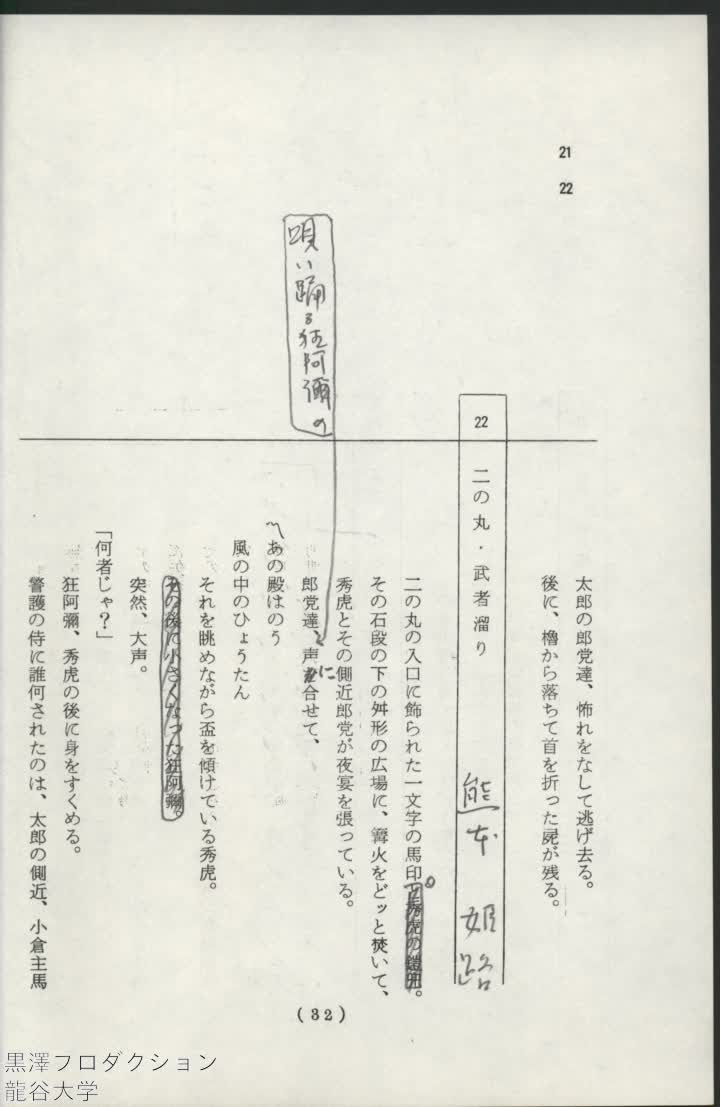 21
22
太郎の郎党達、怖れをなして逃げ去る。
後に、櫓から落ちて首を折った屍が残る。
22 二の丸・武者溜り 熊本 姫路
二の丸の入口に飾られた一文字の馬印と秀虎の鎧兜。
その石段の下の舛形の広場に、篝火をどッと焚いて、
秀虎とその側近郎党が夜宴を張っている。
唄い踊る狂阿彌の
郎党達、声に合せて、
〽あの殿はのう
風の中のひょうたん
それを眺めながら盃を傾けている秀虎。
その後に小さくなった狂阿彌。
突然、大声。
「何者じゃ?」
狂阿彌、秀虎の後に身をすくめる。
警護の侍に誰何されたのは、太郎の側近、小倉主馬
(32)
黒澤プロダクション
龍谷大学